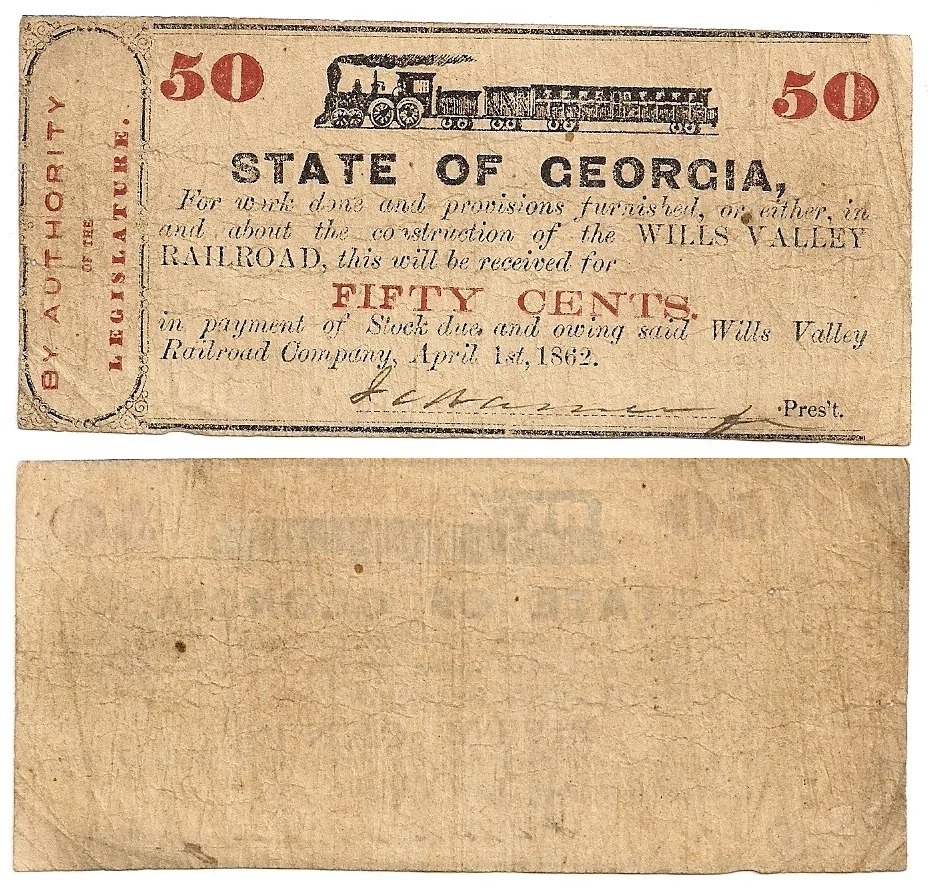 BY AUTHORITY
OF THE
LEGISLATURE.
50
50
STATE OF GEORGIA,
For work done and provisions furnished, or either, in
and about the construction of the WILLS VALLEY
RAILROAD, this will be received for
FIFTY CENTS.
in payment of Stock due and owing said Wills Valley
Railroad Company, April 1st, 1862.
Pres't.